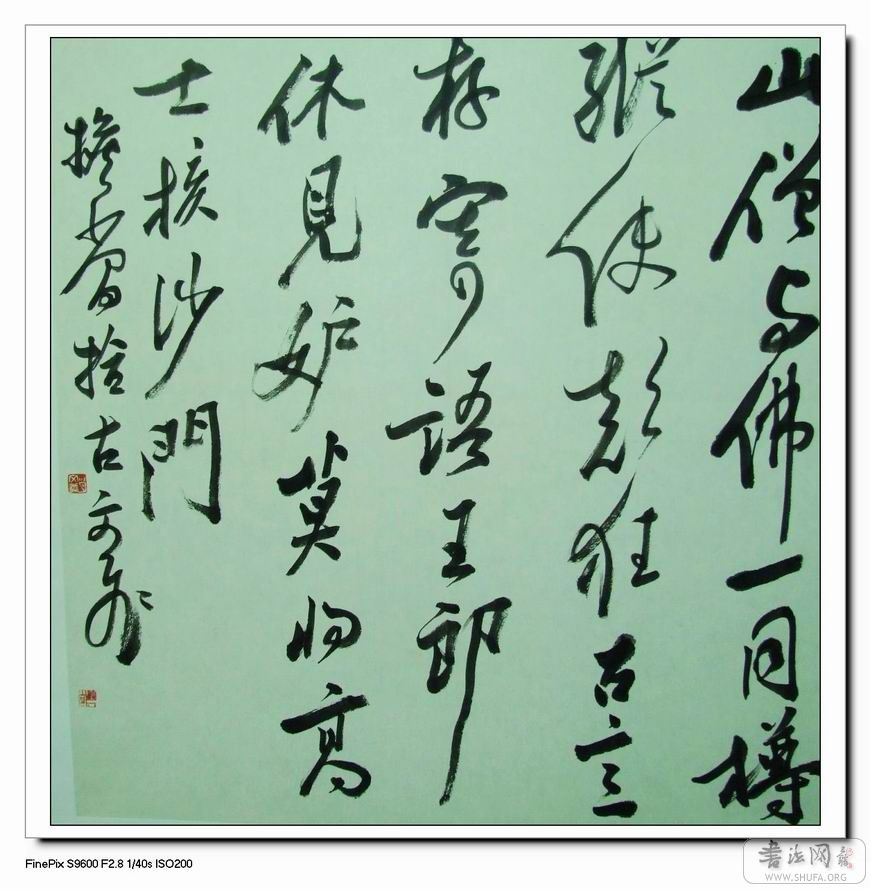 山僧与佛一同樽
縱使彭狂古言
存寄語王郎
休見妒莫将高
士擬沙門
擔當
古
FinePix S9600 F2.8 1/40s ISO200
书法网
WWW.SHUFA.ORG